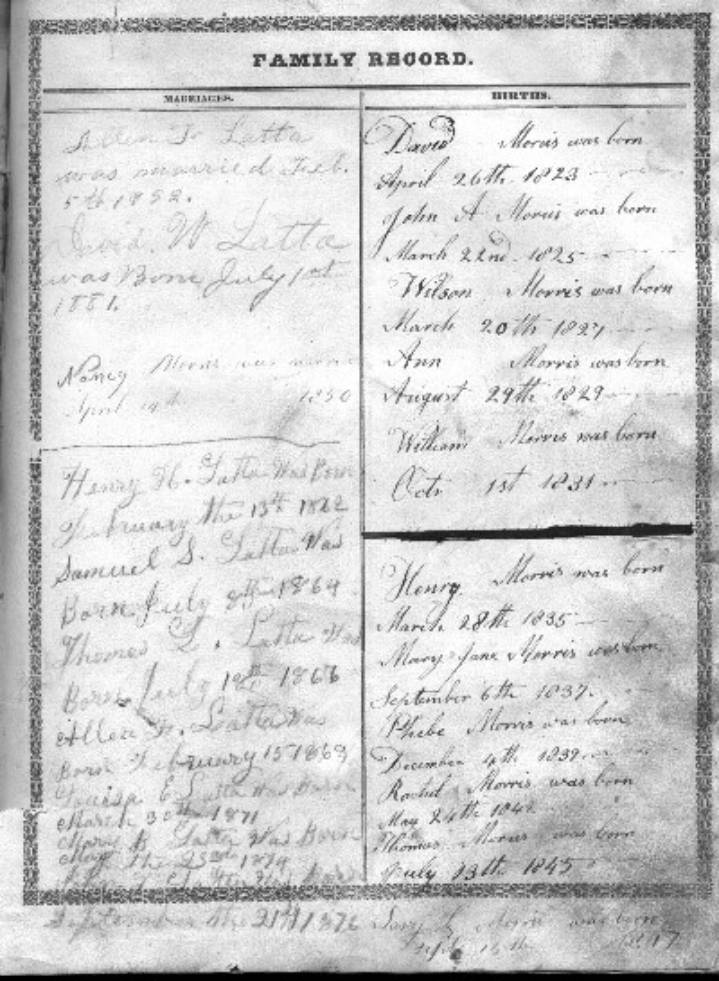 FAMILY RECORD.
MARRIAGES.
Allen Latta
was married Feb.
5th 1892.
David. W Latta
was Born July 1st
1881.
Nancy Morris was
April 1850
Henry H. Latta Was Born
February the 13th 1862
Samuel S. Latta Was
Born July 8th 1864
Thomas L. Latta Was
Born July 1866
Allen Latta Was
Born February 15 1869
Louisa E Latta Was Born
March 30th 1871
Mary Latta Was Born
May the 23rd 1874
Latta Was Born
September the 21st 1876
BIRTHS.
David Morris was born
April 26th 1823
John A Morris was born
March 22nd 1825
Wilson Morris was born
March 20th 1827
Ann Morris was born
August 29th 1829
William Morris was born
Octr 1st 1831
Henry Morris was born
March 28th 1835
Mary Jane Morris was born
September 6th 1837.
Phebe Morris was born
December 4th 1839
Rachel Morris was born
May 24th 1842
Thomas Morris was born
July 13th 1845
Morris was born